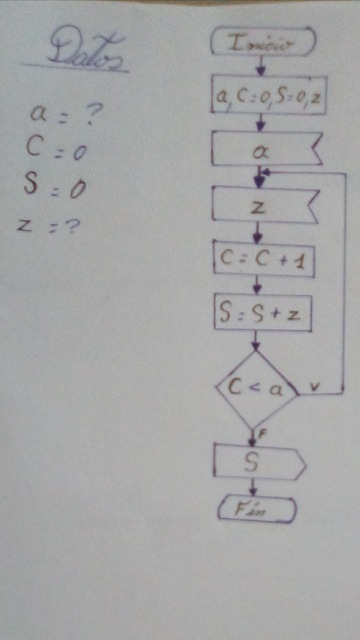 Datos
a = ?
C = 0
S = 0
z = ?
Inicio
a, C=0, S=0, z
a
z
C = C + 1
S = S + z
C < a
V
F
S
Fin